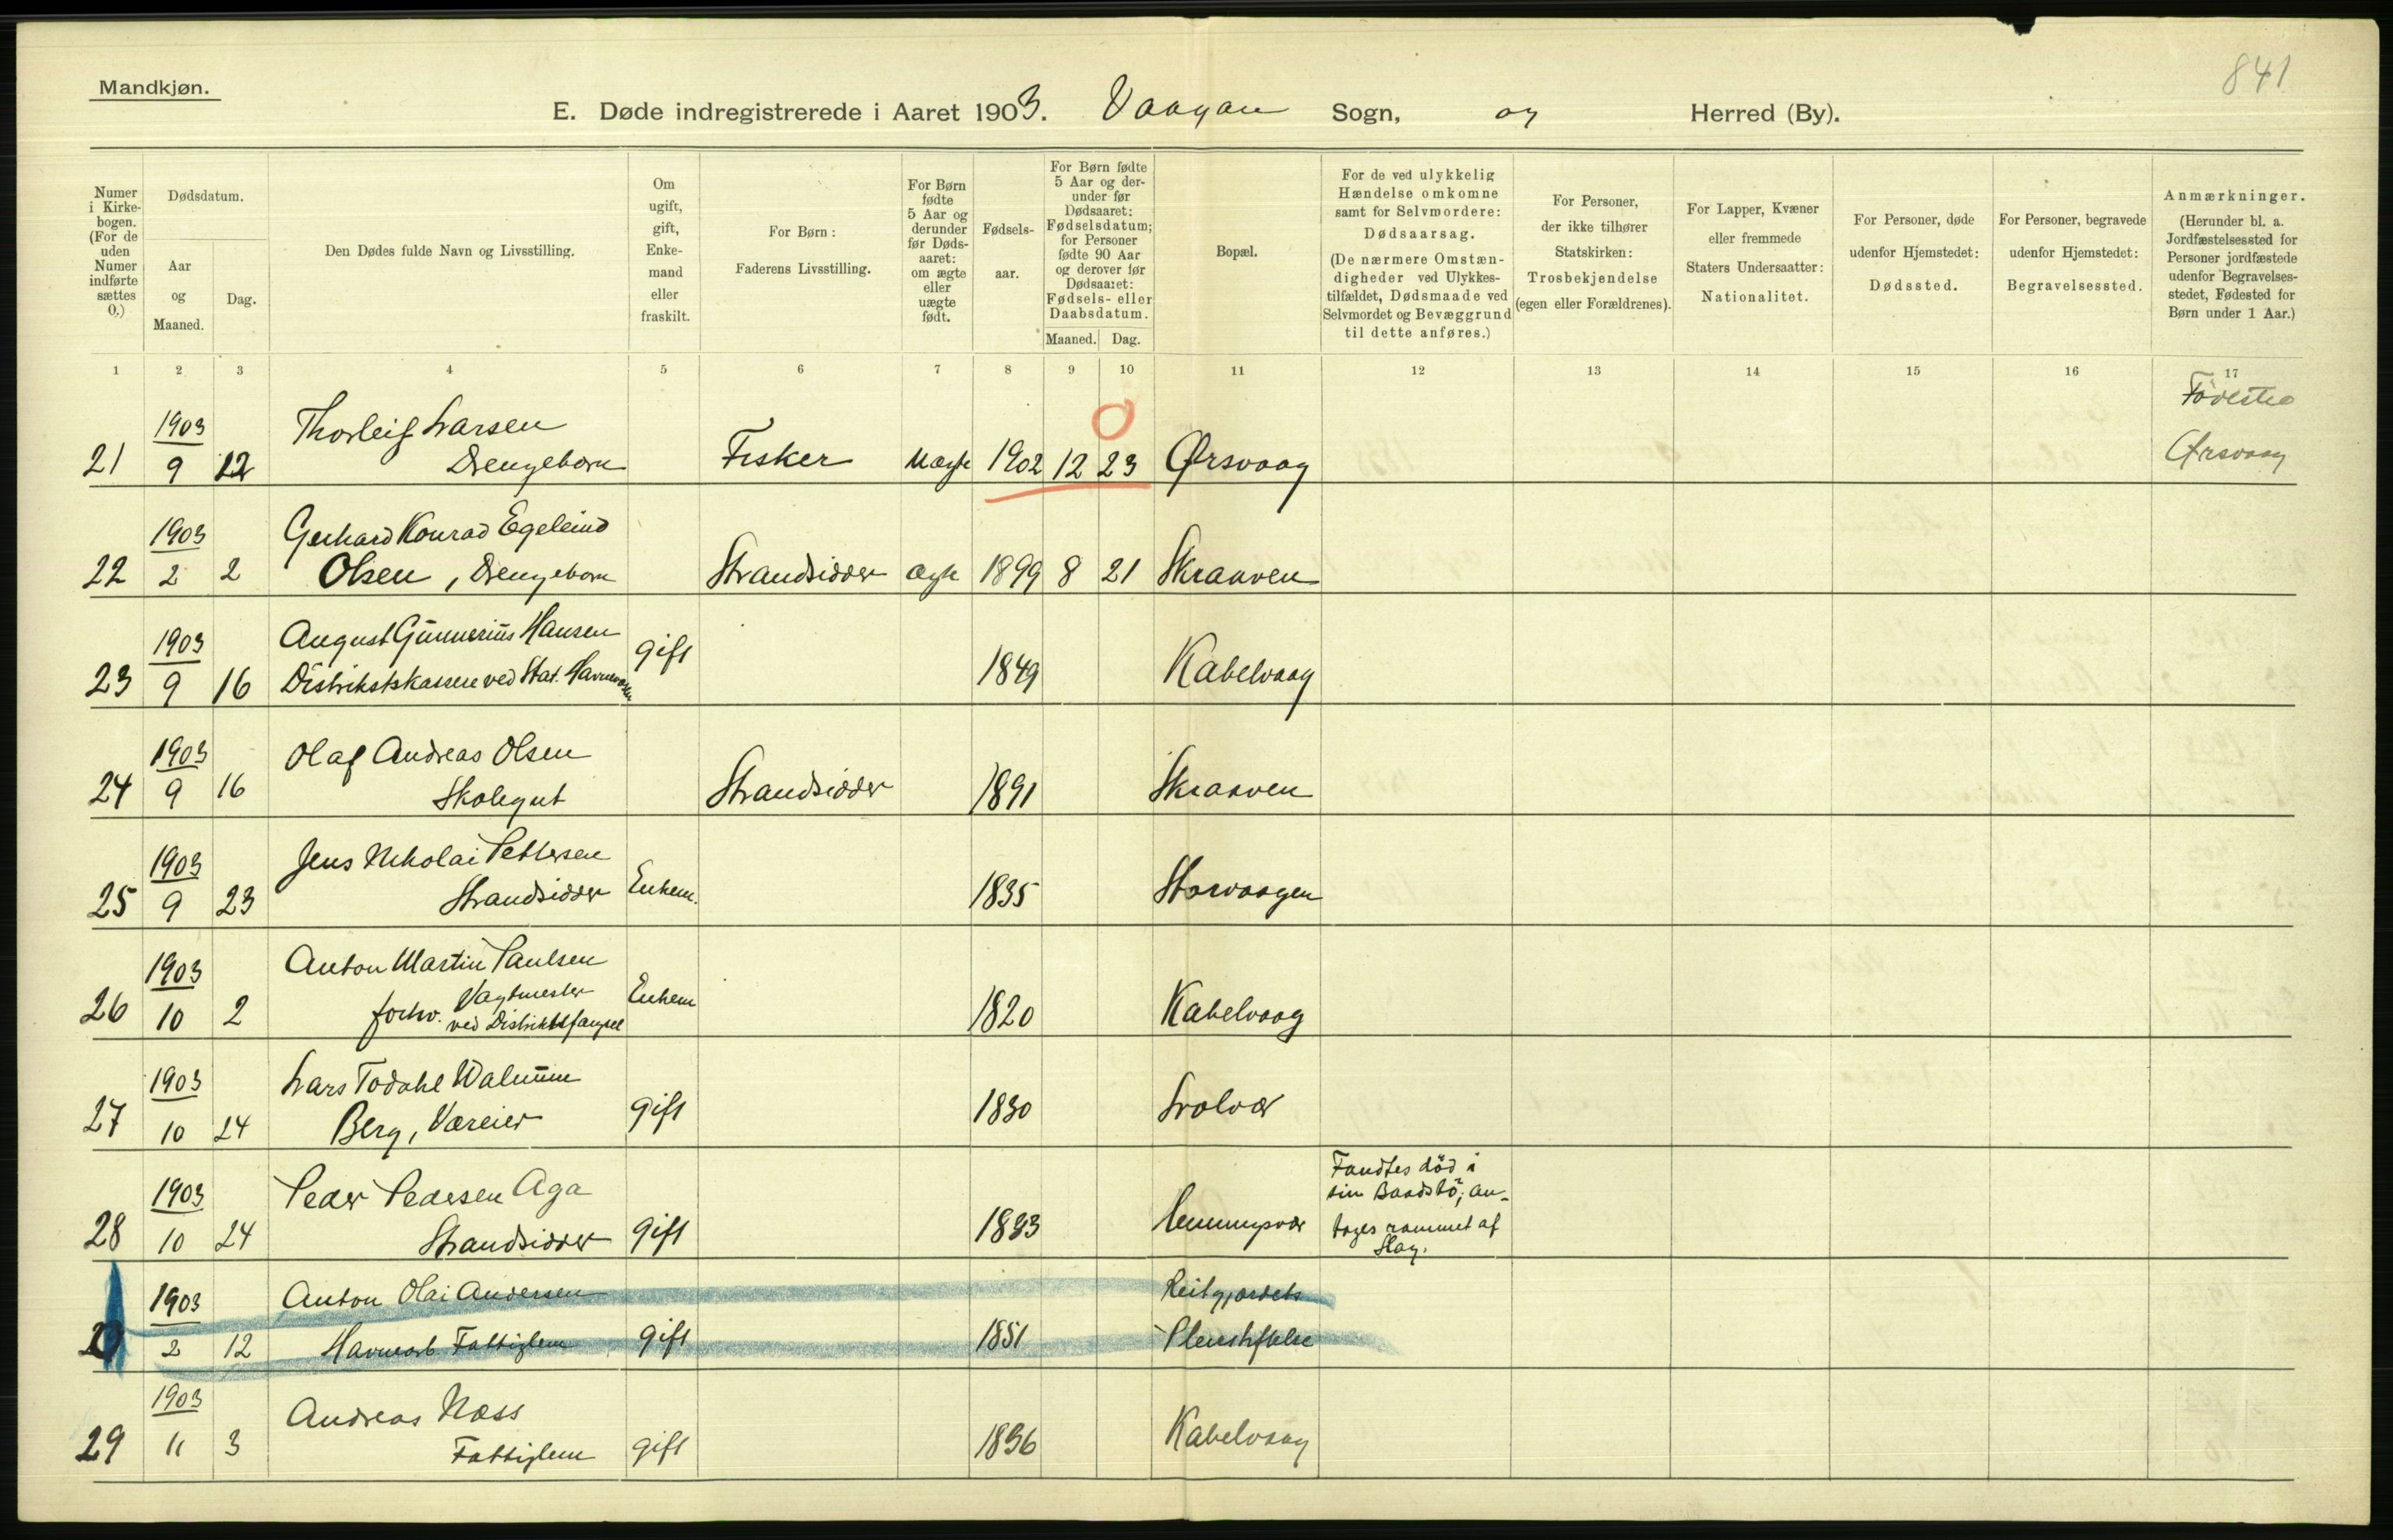 841
Mandkjøn.
E. Døde indregistrerede i Aaret 1903. Vaagan Sogn, og Herred (By).
Numer
i Kirke-
bogen.
(For de
uden
Numer
indførte
sættes
0.)
Dødsdatum.
Aar
og
Maaned.
Dag.
Den Dødes fulde Navn og Livsstilling.
Om
ugift,
gift,
Enke-
mand
eller
fraskilt.
For Børn:
Faderens Livsstilling.
For Børn
fødte
5 Aar og
derunder
før Døds-
aaret:
om ægte
eller
uægte
født.
Fødsels-
aar.
For Børn fødte
5 Aar og der-
under før
Dødsaaret:
Fødselsdatum;
for Personer
fødte 90 Aar
og derover før
Dødsaaret:
Fødsels- eller
Daabsdatum.
Maaned. Dag.
Bopæl.
For de ved ulykkelig
Hændelse omkomne
samt for Selvmordere:
Dødsaarsag.
(De nærmere Omstæn-
digheder ved Ulykkes-
tilfældet, Dødsmaade ved
Selvmordet og Bevæggrund
til dette anføres.)
For Personer,
der ikke tilhører
Statskirken:
Trosbekjendelse
(egen eller Forældrenes).
For Lapper, Kvæner
eller fremmede
Staters Undersaatter:
Nationalitet.
For Personer, døde
udenfor Hjemstedet:
Dødssted.
For Personer, begravede
udenfor Hjemstedet:
Begravelsessted.
Anmærkninger.
(Herunder bl. a.
Jordfæstelsessted for
Personer jordfæstede
udenfor Begravelses-
stedet, Fødested for
Børn under 1 Aar.)
1 2 3 4 5 6 7 8 9 10 11 12 13 14 15 16 17
1903 Thorleif Larsen 0 Födested
21 9 12 Drengebarn Fisker Uægte 1902 12 23 Ørsvaag Ørsvaag
1903 Gerhard Konrad Egeleind
22 2 2 Olsen, Drengebarn Strandsidder Ægte 1899 8 21 Skraaven
1903 August Gunnerius Hansen gift
23 9 16 Distriktskasserer ved Stat. Havnevæsen 1849 Kabelvaag
1903 Olaf Andreas Olsen
24 9 16 Skolegut Strandsidder 1891 Skraaven
1903 Jens Nikolai Pettersen
25 9 23 Strandsidder Enkem. 1835 Storvaagen
1903 Anton Martin Paulsen
Vagtmester Enkem
26 10 2 forhv. ved Distriktsfængsel 1820 Kabelvaag
1903 Lars Todahl Walnum
27 10 24 Berg, Væreier gift 1830 Svolvær
1903 Peder Pedersen Aga Fandtes död i
sin Baadstö; an-
28 10 24 Strandsidder gift 1833 Henningsvær tages rammet af
Slag.
1903 Anton Olai Andersen Reitgjærdets
2 12 Havnearb. Fattiglem gift 1851 Pleiestiftelse
1903 Andreas Næss
29 11 3 Fattiglem gift 1836 Kabelvaag